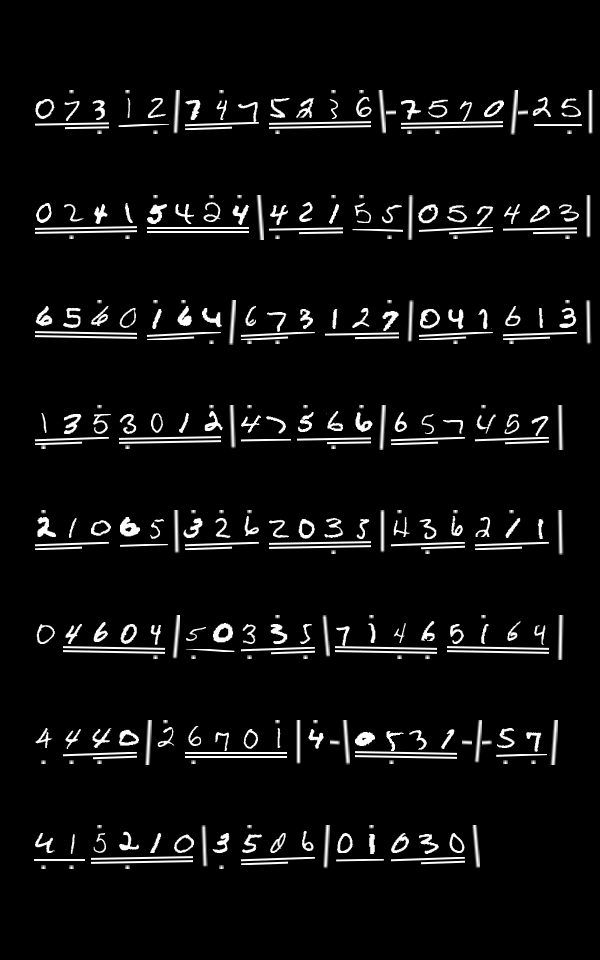 0 7 3 1 2 | 7 4 7 5 2 3 6 | - 7 5 7 0 | - 2 5 |
0 2 4 1 5 4 2 4 | 4 2 1 5 5 | 0 5 7 4 0 3 |
6 5 6 0 1 6 4 | 6 7 3 1 2 7 | 0 4 1 6 1 3 |
1 3 5 3 0 1 2 | 4 7 5 6 6 | 6 5 7 4 5 7 |
2 1 0 6 5 | 3 2 6 2 0 3 5 | 4 3 6 2 1 1 |
0 4 6 0 4 | 5 0 3 3 5 | 7 1 4 6 5 1 6 4 |
4 4 4 0 | 2 6 7 0 1 | 4 - | 0 5 3 1 - | - 5 7 |
4 1 5 2 1 0 | 3 5 0 6 | 0 1 0 3 0 |